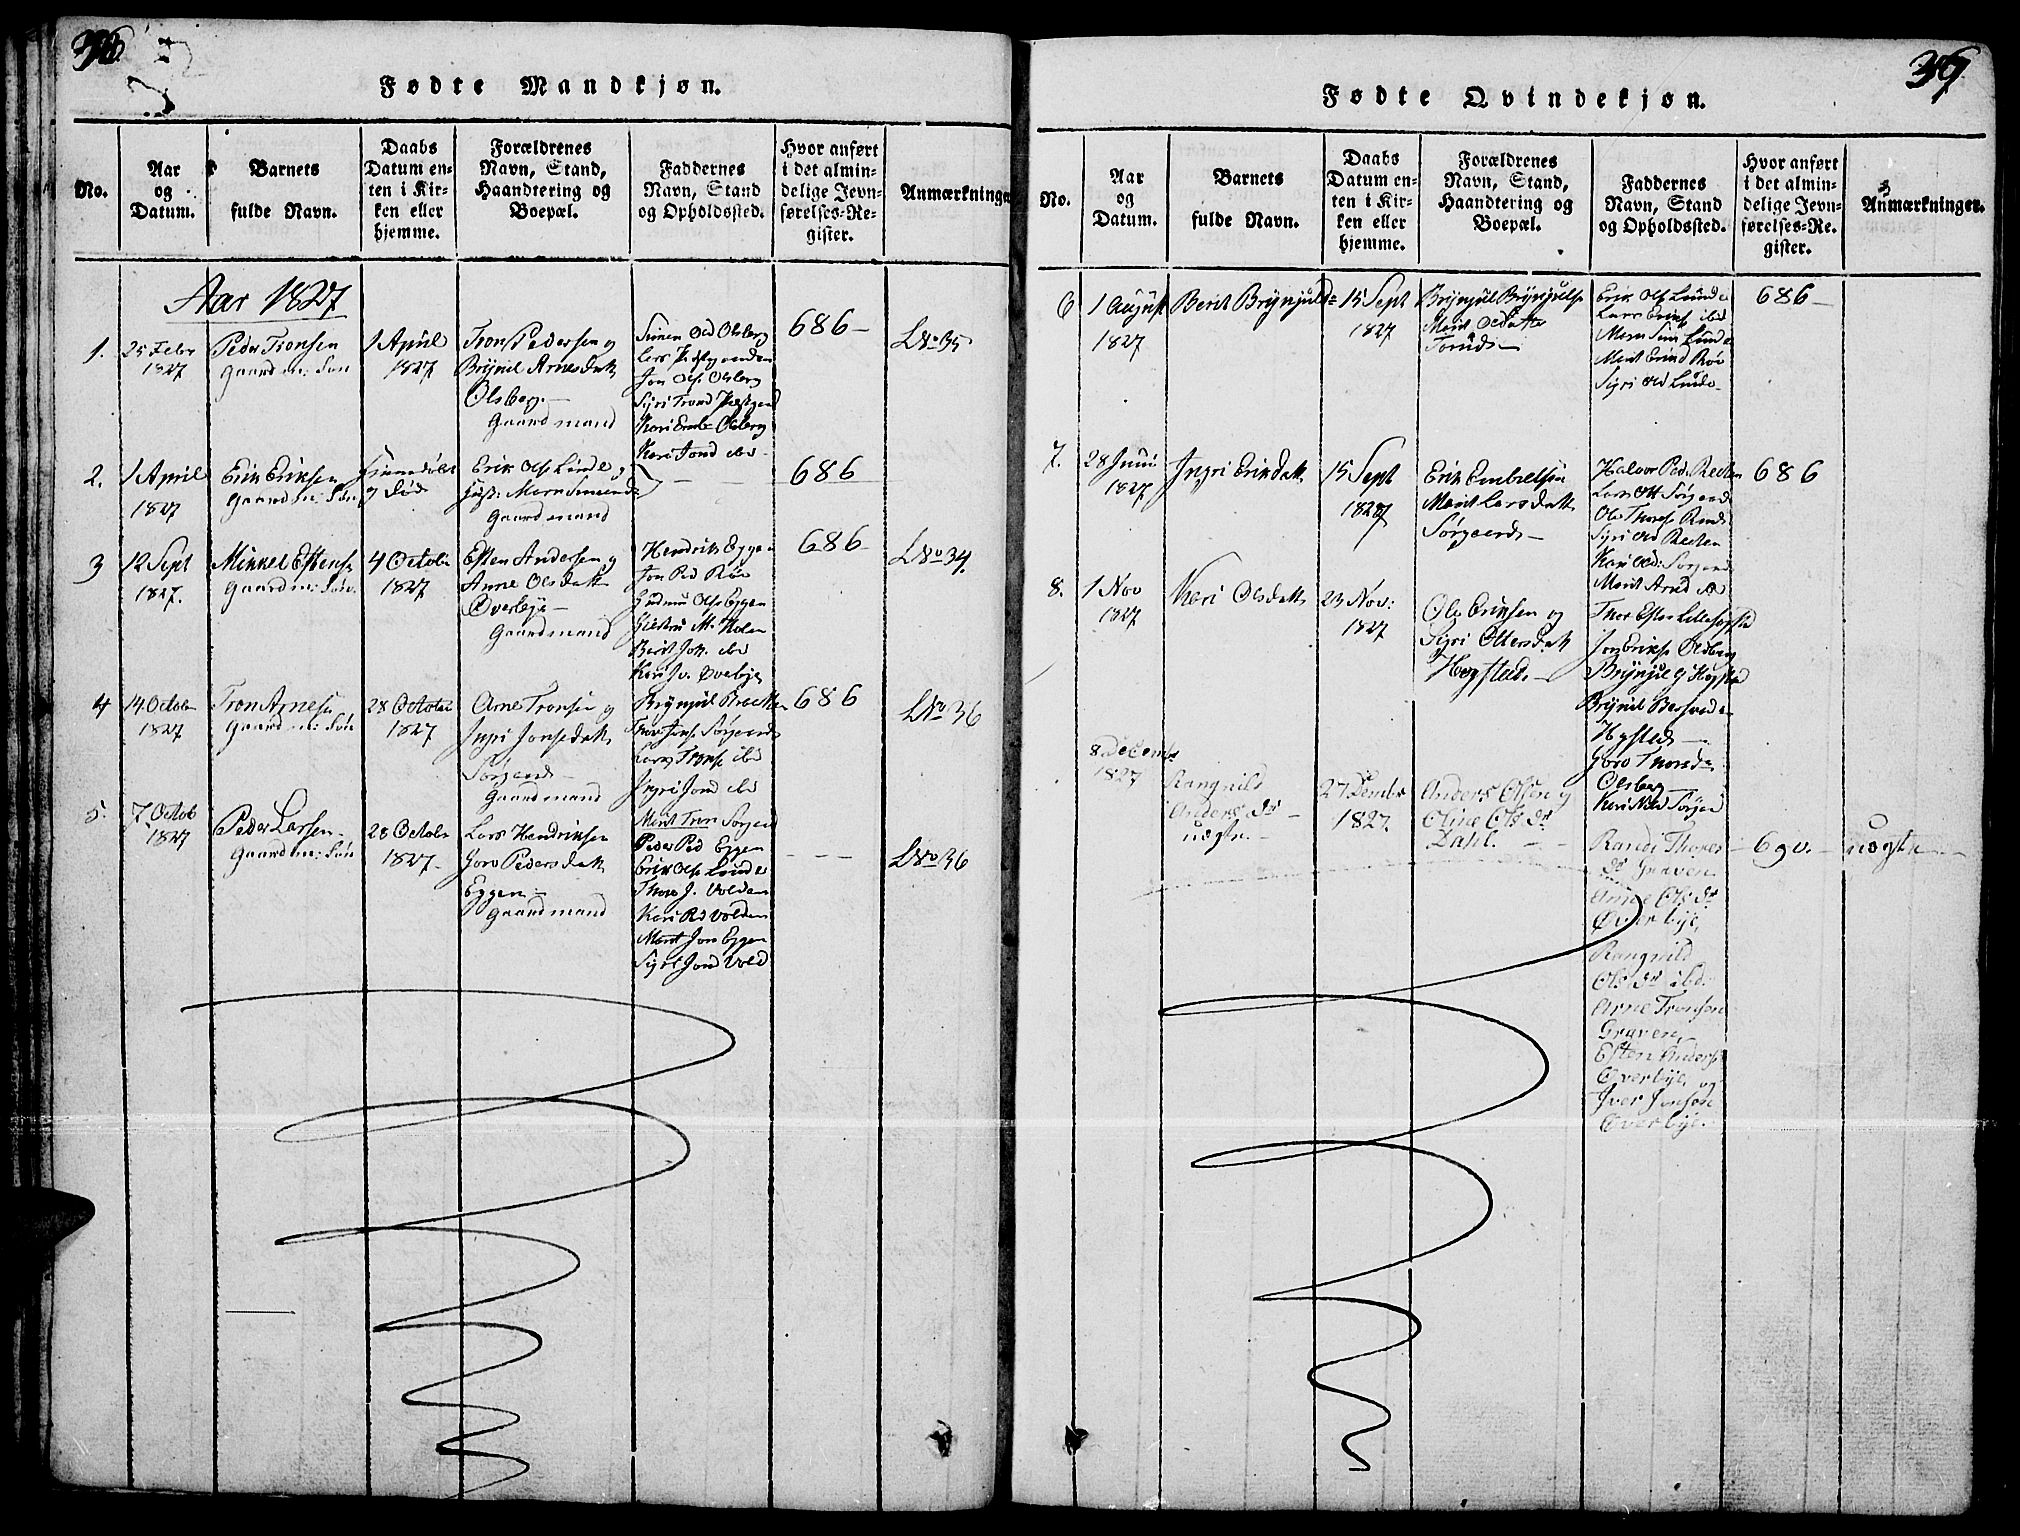 Fødte Mandkjøn.
No.
Aar
og
Datum.
Barnets
fulde Navn.
Daabs
Datum en-
ten i Kir-
ken eller
hjemme.
Forældrenes
Navn, Stand,
Haandtering og
Boepæl.
Faddernes
Navn, Stand
og Opholdssted.
Hvor anført
i det almin-
delige Jevn-
førelses-Re-
gister.
Anmærkninger
Aar 1827
1.
25 Febr
1827
Peder Tronsen
Gaardm: Søn
1 April
1827
Tron Pedersen og
Brynil Arnesdatt
Olsberg.
Gaardmand
Simen Old Olsberg
Jon Ols Olsberg
Siri Trond
Kari Olsberg
Kari Jond ibd
686
LNo 35
2.
1 April
1827
Erik Eriksen
Gaardm: Søn
og Død
Erik Ols Lunde
Gaardmand
686
3
12 Sept
1827.
Mikkel Estens
Gaardm: Søn
4 Octobr
1827
Esten Andersen og
Anne Olsdatt
Overbye
Gaardmand
Hendrik Eggen
Jon Ped Røe
Gudmu Ols Eggen
Berit Joh. ibd
Kari Jv. Overbye
686
LNo 34.
4
14 Octobr
1827
Tron Arnes
Gaardm: Søn
28 Octobr
1827
Arne Tronsen og
Ingri Jonsdatt
Sørgaard
Gaardmand
Brynjul Bræcken
Thor Jons Sørgaard
Lars Trons ibd
Ingri Jond ibd
Marit Tron Sørgaard
686
LNo 36
5.
7 Octob
1827
Peder Larsen
Gaardm: Søn
28 Octobr
1827
Lars Hendriksen
Goro Pedersdatt
Eggen
Gaardmand
Peder Ped Eggen
Erik Ols Lunde
Thore J. Volden
Kari Volden
Marit Jon Eggen
Sigri Jond Vold
LNo 36
37
Fødte Qvindekjøn.
No.
Aar
og
Datum.
Barnets
fulde Navn.
Daabs
Datum en-
ten i Kir-
ken eller
hjemme.
Forældrenes
Navn, Stand,
Haandtering og
Boepæl.
Faddernes
Navn, Stand
og Opholdssted.
Hvor anført
i det almin-
delige Jevn-
førelses-Re-
gister.
Anmærkninger.
6
1 August
1827
Berit Brynjulsd
15 Sept
1827
Brynjul Brynjulse
Marit Olsdatter
Torud
Erik Ols Lunde
Lars Eriks ibd
Marn Sim Lunde
Marit Erind Røe
Siri Old Lunde
686
7.
28 Juni
1827
Ingri Erikdatt
15 Sept
1827
Erik Embretsen
Marit Larsdatt
Sørgaard
Halvor Ped: Recten
Lars Ott Sørgaard
Ole Thores Rand
Siri Old Recten
Kari Old: Sørgaard
Marit Arnd
686
8.
1 Nov
1827
Kari Olsdatt
23 Nov:
1827
Ole Eriksen og
Siri Ottersdatt
Hegsted
Thor Esten Lillehegsted
Jon Eriks Olsberg
Brynjul Hegsted
Brynil
Hegsted
Goro Thorsd
Olsberg
Kari Nild Sørgaard
8 Decembr
1827
Rangnild
Anders Dr
uægte.
27 Decembr
1827.
Anders Olsen og
Oline Ols Dr
Dahl.
Randi Thores
Dr Graven
Anne Ols Dr
Overbye,
Rangnild
Ols Dr ibd:
Arne Tronsøn
Graven,
Esten Anders
Overbye og
Iver Jonsøn
Overbye.
690.
uægte